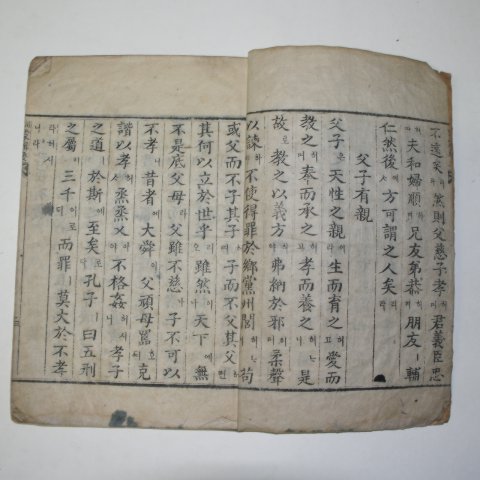 不遠矣리 然則父慈子孝며 君義臣忠
夫和婦順허며 兄友弟恭허며 朋友ㅣ 輔
仁然後에사 方可謂之人矣리라
父子有親
父子은 天性之親이라 生而育之고 愛而
敎之허며 奉而承之허고 孝而養之허나니 是
故로 敎之以義方허야 弗納於邪허며 柔聲
以諫하야 不使得罪於鄕黨州閭허나니 苟
或父而不子其子허며 子而不父其父허면
其何以立於世乎리오 雖然이나 天下에 無
不是底父母라 父雖不慈나 子不可以
不孝니 昔者에 大舜이 父頑母嚚호 克
諧以孝하사 烝烝乂하야 不格姦허시니 孝子
之道ㅣ 於斯에 至矣로다 孔子ㅣ 曰五刑
之屬이 三千이로되 而罪ㅣ 莫大於不孝
라허시니라